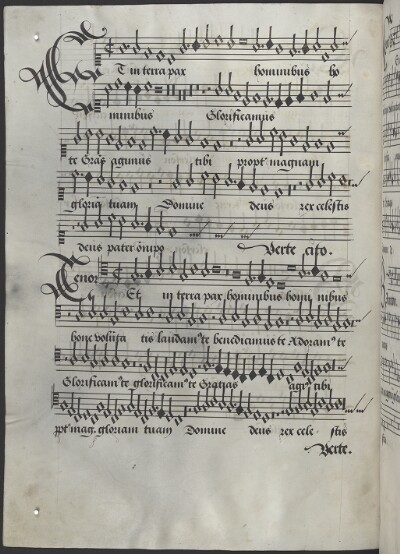 Et in terra pax hominibus ho
minibus Glorificamus
te Gras agimus tibi propt magnam
gloria tuam Domine deus rex celestis
deus pater õnipo Verte cito.
Tenor Et in terra pax hominibus homi nibus
bone volūta tis laudamꝰ te benedicimus te Adoramꝰ te
Glorificamꝰ te glorificamꝰ te Gratias agimꝰ tibi
ppt mag. gloriam tuam Domine deus rex cele stis
Verte.